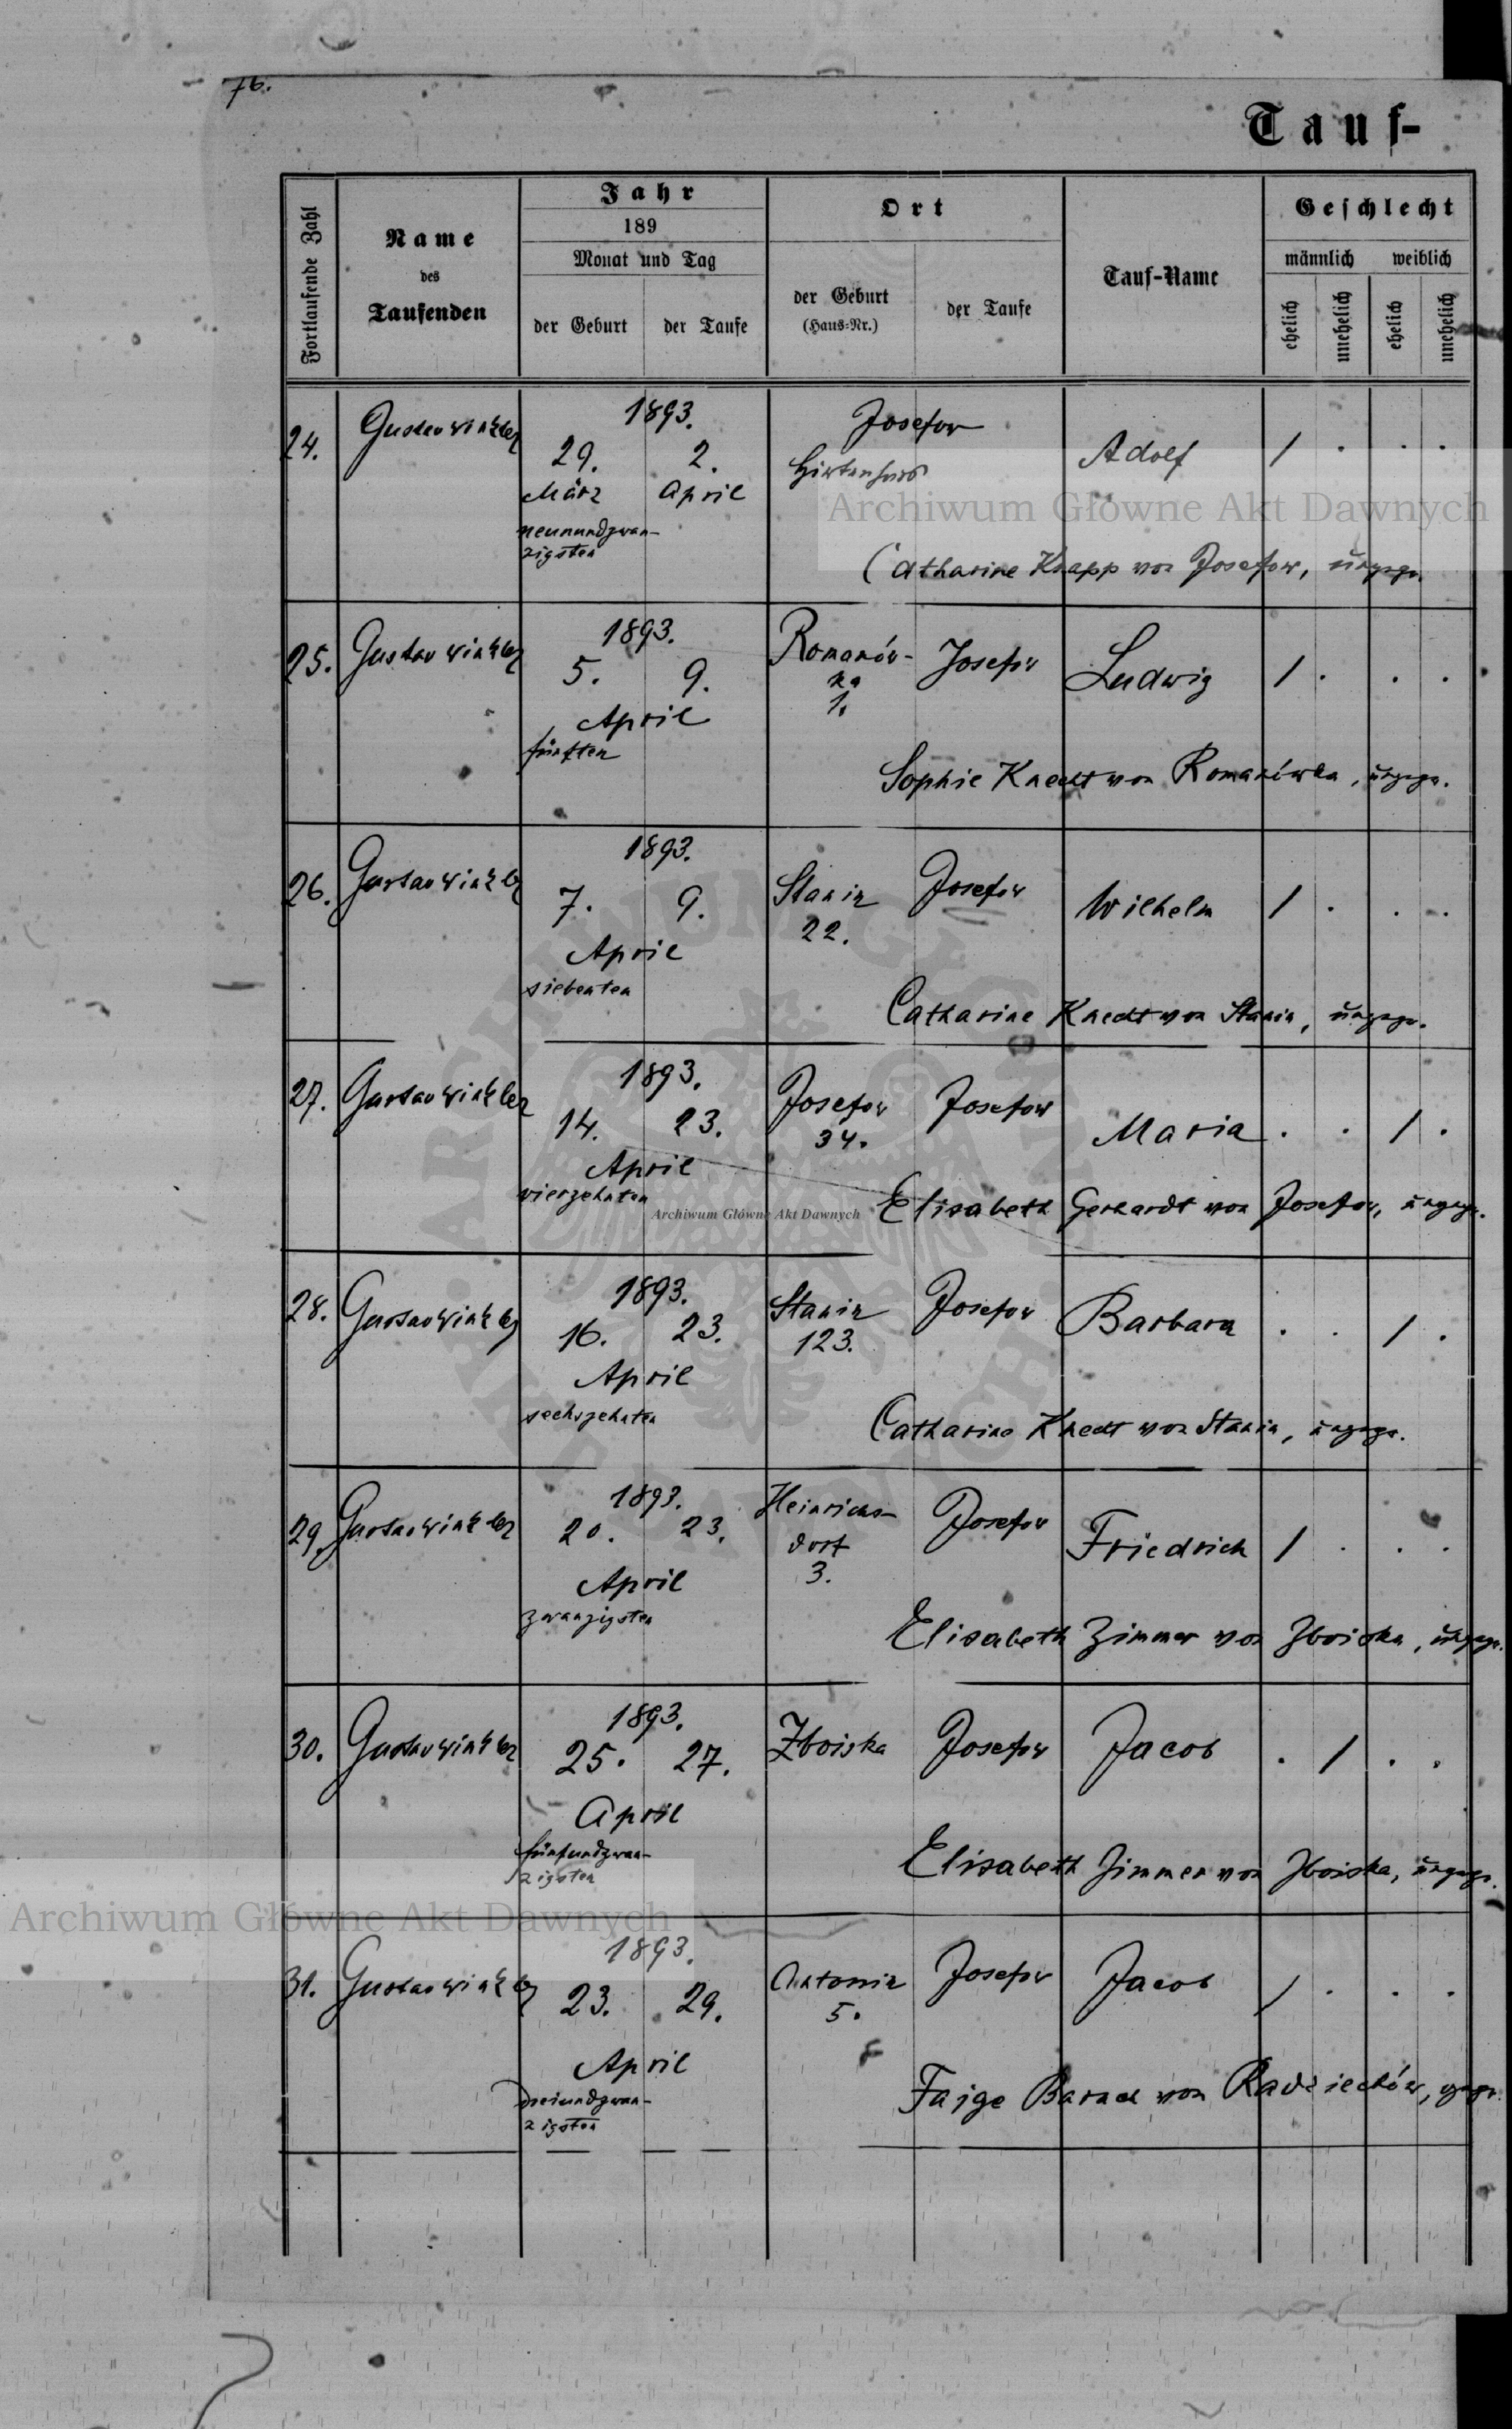 76.
Tauf-
Fortlaufende Zahl
Name
des
Taufenden
Jahr
189
Monat und Tag
der Geburt
der Taufe
Ort
der Geburt
(Haus-Nr.)
der Taufe
Tauf-Name
Geschlecht
männlich weiblich
ehelich
unehelich
ehelich
unehelich
24. Gustav Winkler 1893. Josefow
29. 2. Hirtenhaus Adolf / . . .
März April
neunundzwan-
zigsten
Catharine Knapp von Josefow, ungepr.
25. Gustav Winkler 1893. Romanów-
ka
1.
Josefow Ludwig / . . .
5. 9.
April
fünften
Sophie Knecht von Romanówka, ungepr.
26. Gustav Winkler 1893. Stanin
22.
Josefow Wilhelm / . . .
7. 9.
April
siebenten
Catharine Knecht von Stanin, ungepr.
27. Gustav Winkler 1893. Josefow
34.
Josefow Maria . . / .
14. 23.
April
vierzehnten
Elisabeth Gerhardt von Josefow, ungepr.
28. Gustav Winkler 1893. Stanin
123.
Josefow Barbara . . / .
16. 23.
April
sechszehnten
Catharine Knecht von Stanin, ungepr.
29. Gustav Winkler 1893. Heinrichs-
dorf
3.
Josefow Friedrich / . . .
20. 23.
April
zwanzigsten
Elisabeth Zimmer von Zboiska, ungepr.
30. Gustav Winkler 1893. Zboiska Josefow Jacob . / . .
25. 27.
April
fünfundzwan-
zigsten
Elisabeth Zimmer von Zboiska, ungepr.
31. Gustav Winkler 1893. Antonin
5.
Josefow Jacob / . . .
23. 29.
April
dreiundzwan-
zigsten
Faige Barach von Radziechów, gepr.
Archiwum Główne Akt Dawnych
Archiwum Główne Akt Dawnych
Archiwum Główne Akt Dawnych